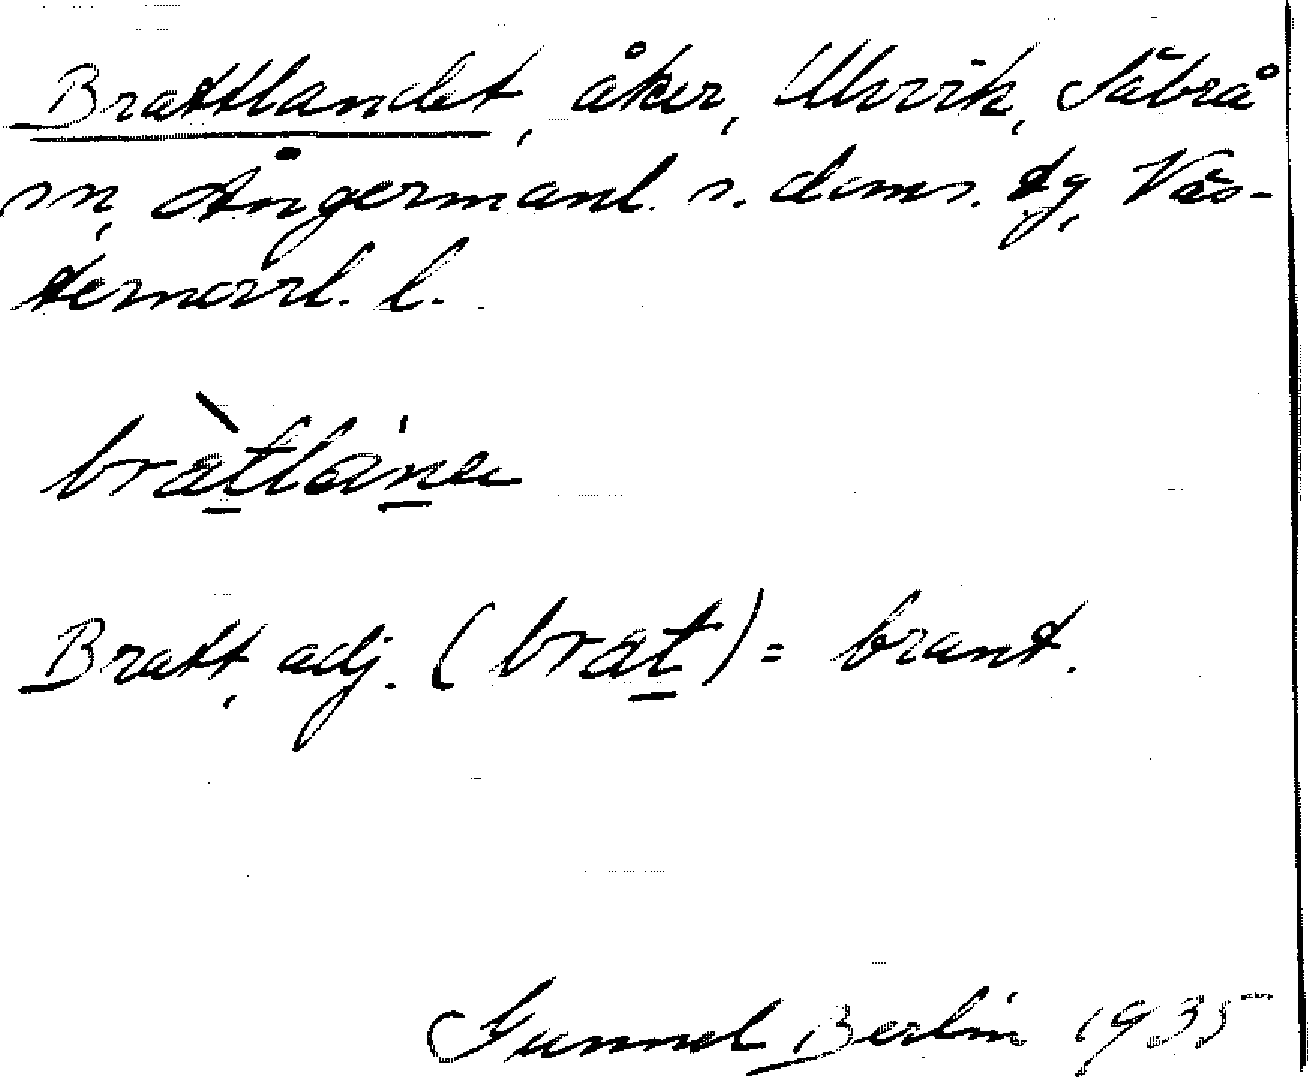 Brattlandet, åker, Ulvvik, Säbrå
sn, Ångermanl. s. doms. tg, Väs-
ternorrl. l.
Bratt, adj. (brat) = brant.
Gunnel Berlin 1935